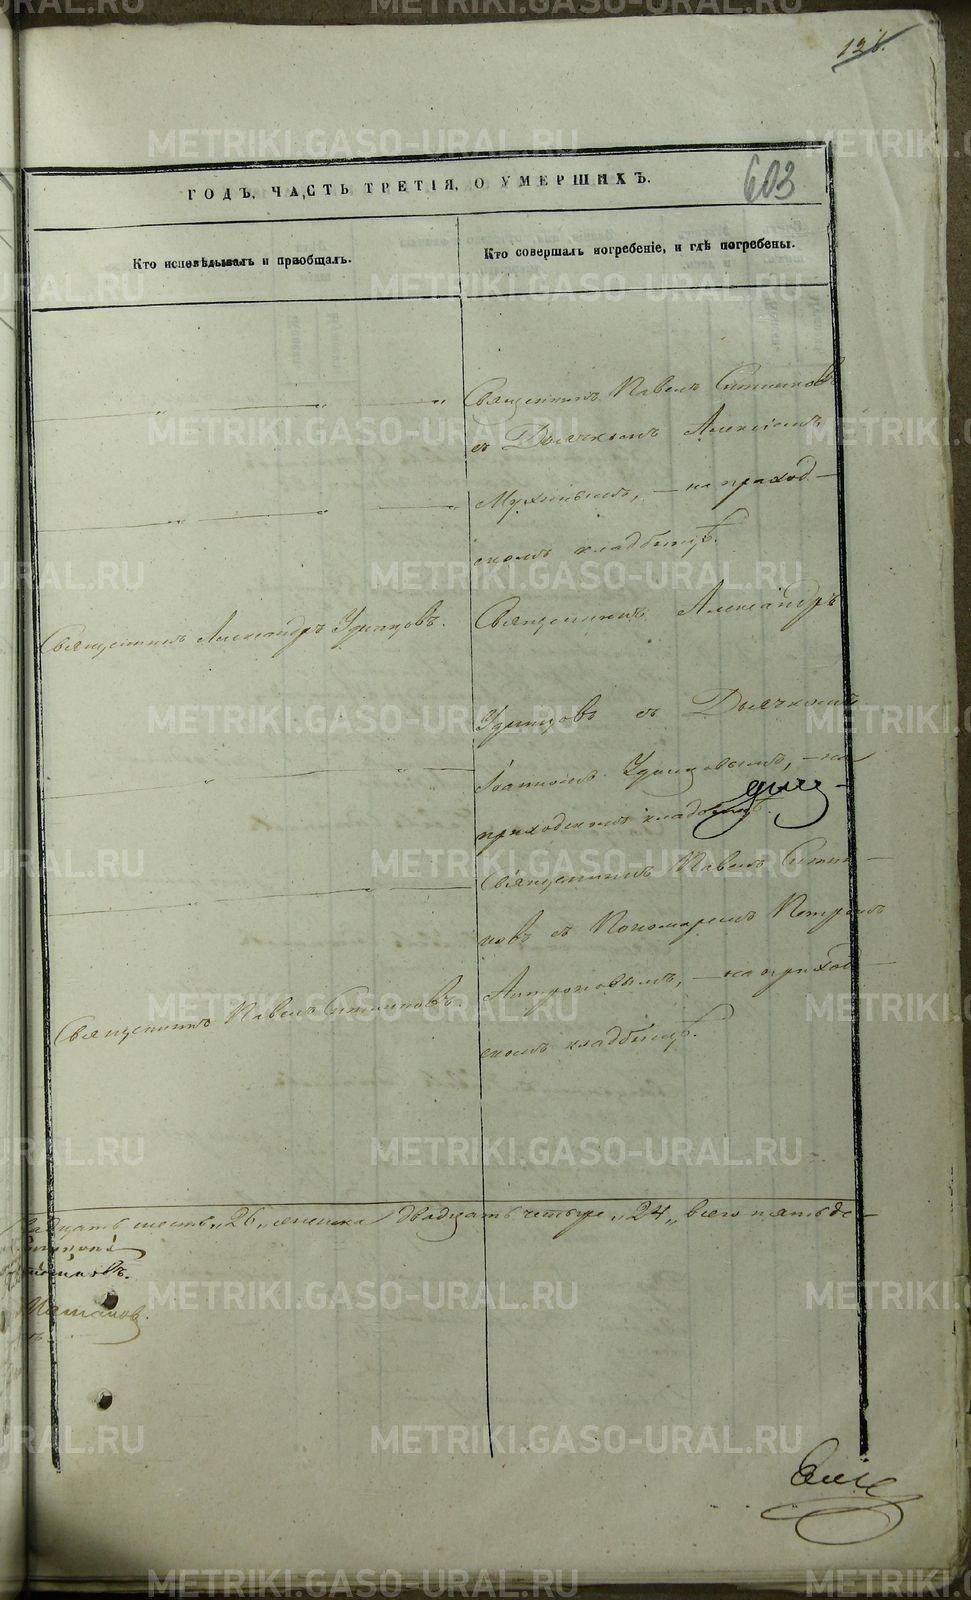 126.
603
ГОДЪ, ЧАСТЬ ТРЕТІЯ, О УМЕРШИХЪ.
Кто исповѣдывалъ и пріобщалъ.
Кто совершалъ погребеніе, и гдѣ погребены.
Священникъ Павелъ Ситниковъ
съ Дьячкомъ Алексѣемъ
Мухинымъ, — на приход-
скомъ кладбищѣ.
Священникъ Александръ Удинцовъ.
Священникъ Александръ
Удинцовъ съ Дьячкомъ
Іоанномъ Удинцовымъ, — на
приходскомъ кладбищѣ.
Священникъ Павелъ Ситни-
ковъ съ Пономаремъ Петромъ
Антроповымъ, — на приход-
скомъ кладбищѣ.
Священникъ Павелъ Ситниковъ.
двадцать шесть „26„ женска двадцать четыре „24„ всего пятьде-
METRIKI.GASO-URAL.RU